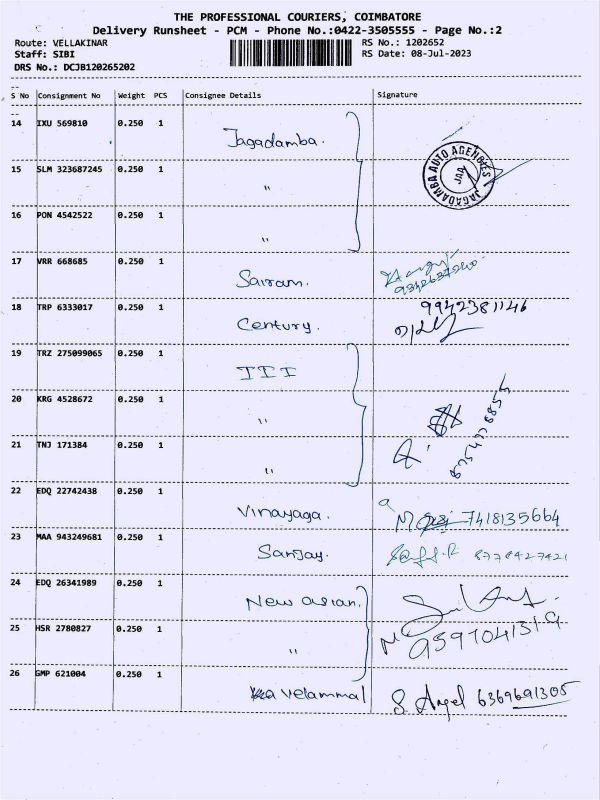 THE PROFESSIONAL COURIERS, COIMBATORE
Delivery Runsheet - PCM - Phone No.:0422-3505555 - Page No.:2
Route: VELLAKINAR RS No.: 1202652
Staff: SIBI RS Date: 08-Jul-2023
DRS No.: DCJB120265202
S No Consignment No Weight PCS Consignee Details Signature
14 IXU 569810 0.250 1 Jagadamba.
JAGADAMBA AUTO AGENCIES
JAA
15 SLM 323687245 0.250 1 "
16 PON 4542522 0.250 1 "
17 VRR 668685 0.250 1 Sairam.
18 TRP 6333017 0.250 1 Century. 9942381146
19 TRZ 275099065 0.250 1 III
20 KRG 4528672 0.250 1 "
21 TNJ 171384 0.250 1 "
22 EDQ 22742438 0.250 1 Vinayaga. 7418135664
23 MAA 943249681 0.250 1 Sanjay. 8778427421
24 EDQ 26341989 0.250 1 New asian.
25 HSR 2780827 0.250 1 "
26 GMP 621004 0.250 1 velammal S. Angel 6369691305